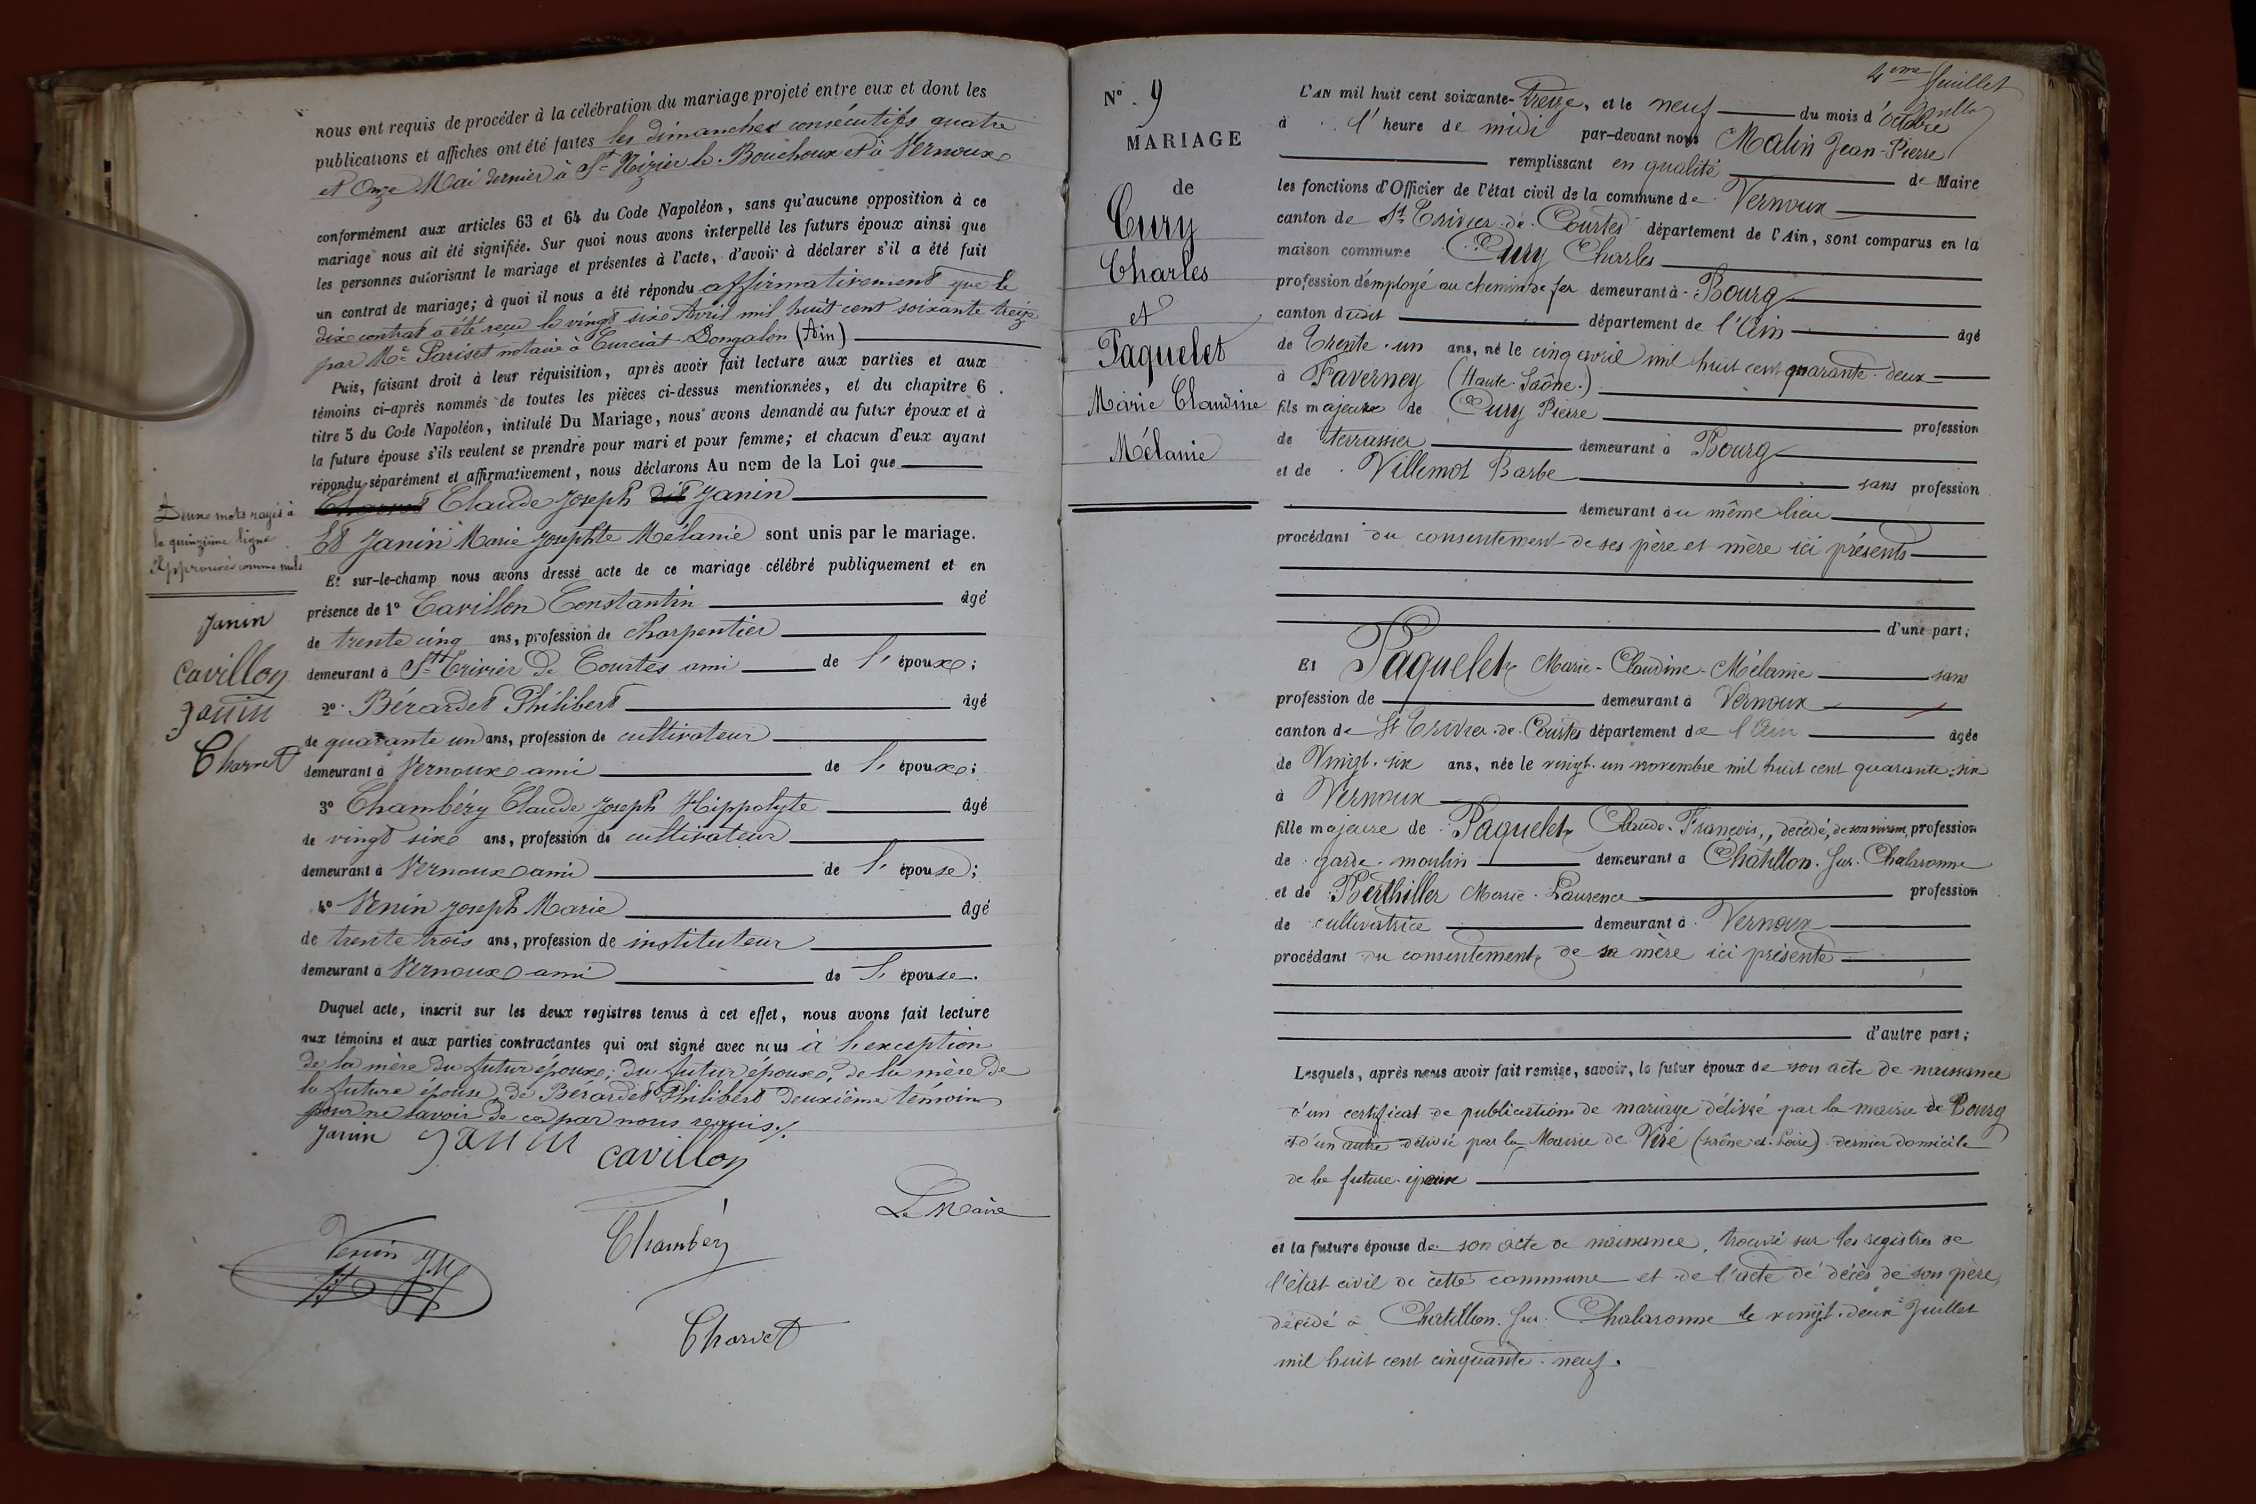 nous ont requis de procéder à la célébration du mariage projeté entre eux et dont les
publications et affiches ont été faites les dimanches consécutifs quatre
et Onze Mai dernier à St Nizier le Bouchoux et à Vernoux
conformément aux articles 63 et 64 du Code Napoléon, sans qu'aucune opposition à ce
mariage nous ait été signifiée. Sur quoi nous avons interpellé les futurs époux ainsi que
les personnes autorisant le mariage et présentes à l'acte, d'avoir à déclarer s'il a été fait
un contrat de mariage; à quoi il nous a été répondu affirmativement que le
dix contrat a été reçu le vingt six Avril mil huit cent soixante treize
par Me Pariset notaire à Curciat-Dongalon (Ain)
Puis, faisant droit à leur réquisition, après avoir fait lecture aux parties et aux
témoins ci-après nommés de toutes les pièces ci-dessus mentionnées, et du chapitre 6
titre 5 du Code Napoléon, intitulé Du Mariage, nous avons demandé au futur époux et à
la future épouse s'ils veulent se prendre pour mari et pour femme; et chacun d'eux ayant
répondu séparément et affirmativement, nous déclarons Au nom de la Loi que
Claude Joseph dit Janin
Et Janin Marie Josephte Mélanie sont unis par le mariage.
Et sur-le-champ nous avons dressé acte de ce mariage célébré publiquement et en
présence de 1° Cavillon Constantin âgé
de trente cinq ans, profession de charpentier
demeurant à St Trivier de Courtes ami de l'époux;
2° Bérardet Philibert âgé
de quarante un ans, profession de cultivateur
demeurant à Vernoux ami de l'époux;
3° Chambéry Claude Joseph Hippolyte âgé
de vingt six ans, profession de cultivateur
demeurant à Vernoux ami de l'épouse;
4° Venin Joseph Marie âgé
de trente trois ans, profession de instituteur
demeurant à Vernoux ami de l'épouse.
Duquel acte, inscrit sur les deux registres tenus à cet effet, nous avons fait lecture
aux témoins et aux parties contractantes qui ont signé avec nous à l'exception
de la mère du futur époux, du futur époux, de la mère de
la future épouse, de Bérardet Philibert deuxième témoin
pour ne savoir de ce par nous requis./.
Janin Janin cavillon
Le Maire
Venin J.M
Chambéry
Charvet
Deux mots rayés à
la quinzième ligne
Approuvés comme nuls
Janin
cavillon
Janin
Charvet
4eme feuillet
N° 9
MARIAGE
de
Cury
Charles
et
Paquelet
Marie Claudine
Mélanie
L'AN mil huit cent soixante-treize, et le neuf du mois d'octobre
à l'heure de midi par-devant nous Malin Jean-Pierre
remplissant en qualité de Maire
les fonctions d'Officier de l'état civil de la commune de Vernoux
canton de St Trivier de Courtes département de l'Ain, sont comparus en la
maison commune Cury Charles
profession d'employé au chemin de fer demeurant à Bourg
canton dudit département de l'Ain âgé
de Trente-un ans, né le cinq avril mil huit cent quarante-deux
à Faverney (Haute-Saône.)
fils majeur de Cury Pierre profession
de terrassier demeurant à Bourg
et de Villemot Barbe sans profession
demeurant au même lieu
procédant du consentement de ses père et mère ici présents
d'une part;
Et Paquelet Marie-Claudine-Mélanie sans
profession de demeurant à Vernoux
canton de St Trivier-de-Courtes département de l'Ain âgée
de Vingt-six ans, née le vingt-un novembre mil huit cent quarante-six
à Vernoux
fille majeure de Paquelet Claude-François, décédé, de son vivant, profession
de garde-moulin demeurant à Châtillon-sur-Chalaronne
et de Berthiller Marie-Laurence profession
de cultivatrice demeurant à Vernoux
procédant du consentement de sa mère ici présente
d'autre part;
Lesquels, après nous avoir fait remise, savoir, le futur époux de son acte de naissance
d'un certificat de publications de mariage délivré par la mairie de Bourg
et d'un autre délivré par la Mairie de Viré (Saône-et-Loire) dernier domicile
de la future épouse
et la future épouse de son acte de naissance, trouvé sur les registres de
l'état civil de cette commune et de l'acte de décès de son père,
décédé à Châtillon-sur-Chalaronne le vingt-deux Juillet
mil huit cent cinquante-neuf.